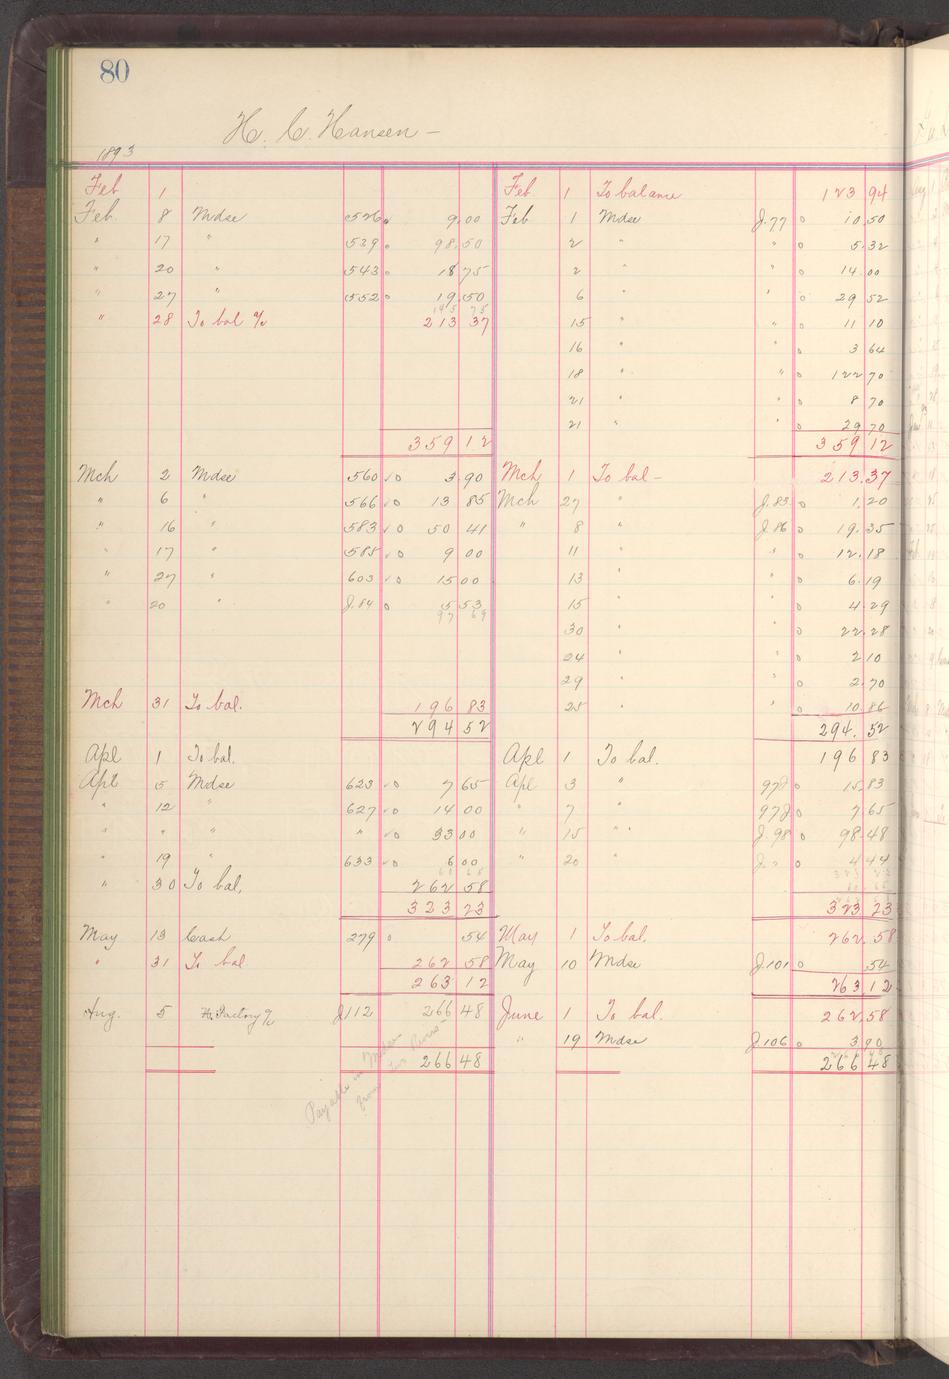 80
H. C. Hansen –
1893
Feb 1
Feb. 8 Mdse 526 o 9.00
" 17 " 539 o 98.50
" 20 " 543 o 18 75
" 27 " 552 o 19.50
145 75
" 28 To bal % 213 37
359 12
Mch 2 Mdse 560 o 3.90
" 6 " 566 o 13 85
" 16 " 583 o 50 41
" 17 " 588 o 9 00
" 27 " 603 o 15 00
" 20 " J.84 o 5 53
97 69
Mch 31 To bal. 196 83
294 52
Apl 1 To bal.
Apl 5 Mdse 623 o 7 65
" 12 " 627 o 14 00
" " " " o 33 00
" 19 " 633 o 6 00
60 65
" 30 To bal, 262 58
323 23
May 13 Cash 279 o 54
" 31 To bal 262 58
263 12
Aug. 5 Factory % J112 266 48
266 48
Payable in Mdse
from
Feb 1 To balance 123 94
Feb 1 Mdse J.77 o 10.50
2 " " o 5.32
2 " " o 14.00
6 " " o 29 52
15 " " o 11 10
16 " " o 3 64
18 " " o 122 70
21 " " o 8 70
21 " " o 29 70
359 12
Mch 1 To bal – 213.37
Mch 27 " J.83 o 1.20
" 8 " J.86 o 19.35
11 " " o 12.18
13 " " o 6.19
15 " " o 4.29
30 " " o 22.28
24 " " o 2 10
29 " " o 2.70
25 " " o 10.86
294. 52
Apl 1 To bal. 196 83
Apl 3 " 97J o 15.83
" 7 " 97J o 7.65
" 15 " " J.98 o 98.48
" 20 " o 4 44
323 23
May 1 To bal. 262.58
May 10 Mdse J.101 o .54
263.12
June 1 To bal. 262.58
" 19 Mdse J.106 o 3.90
266 48